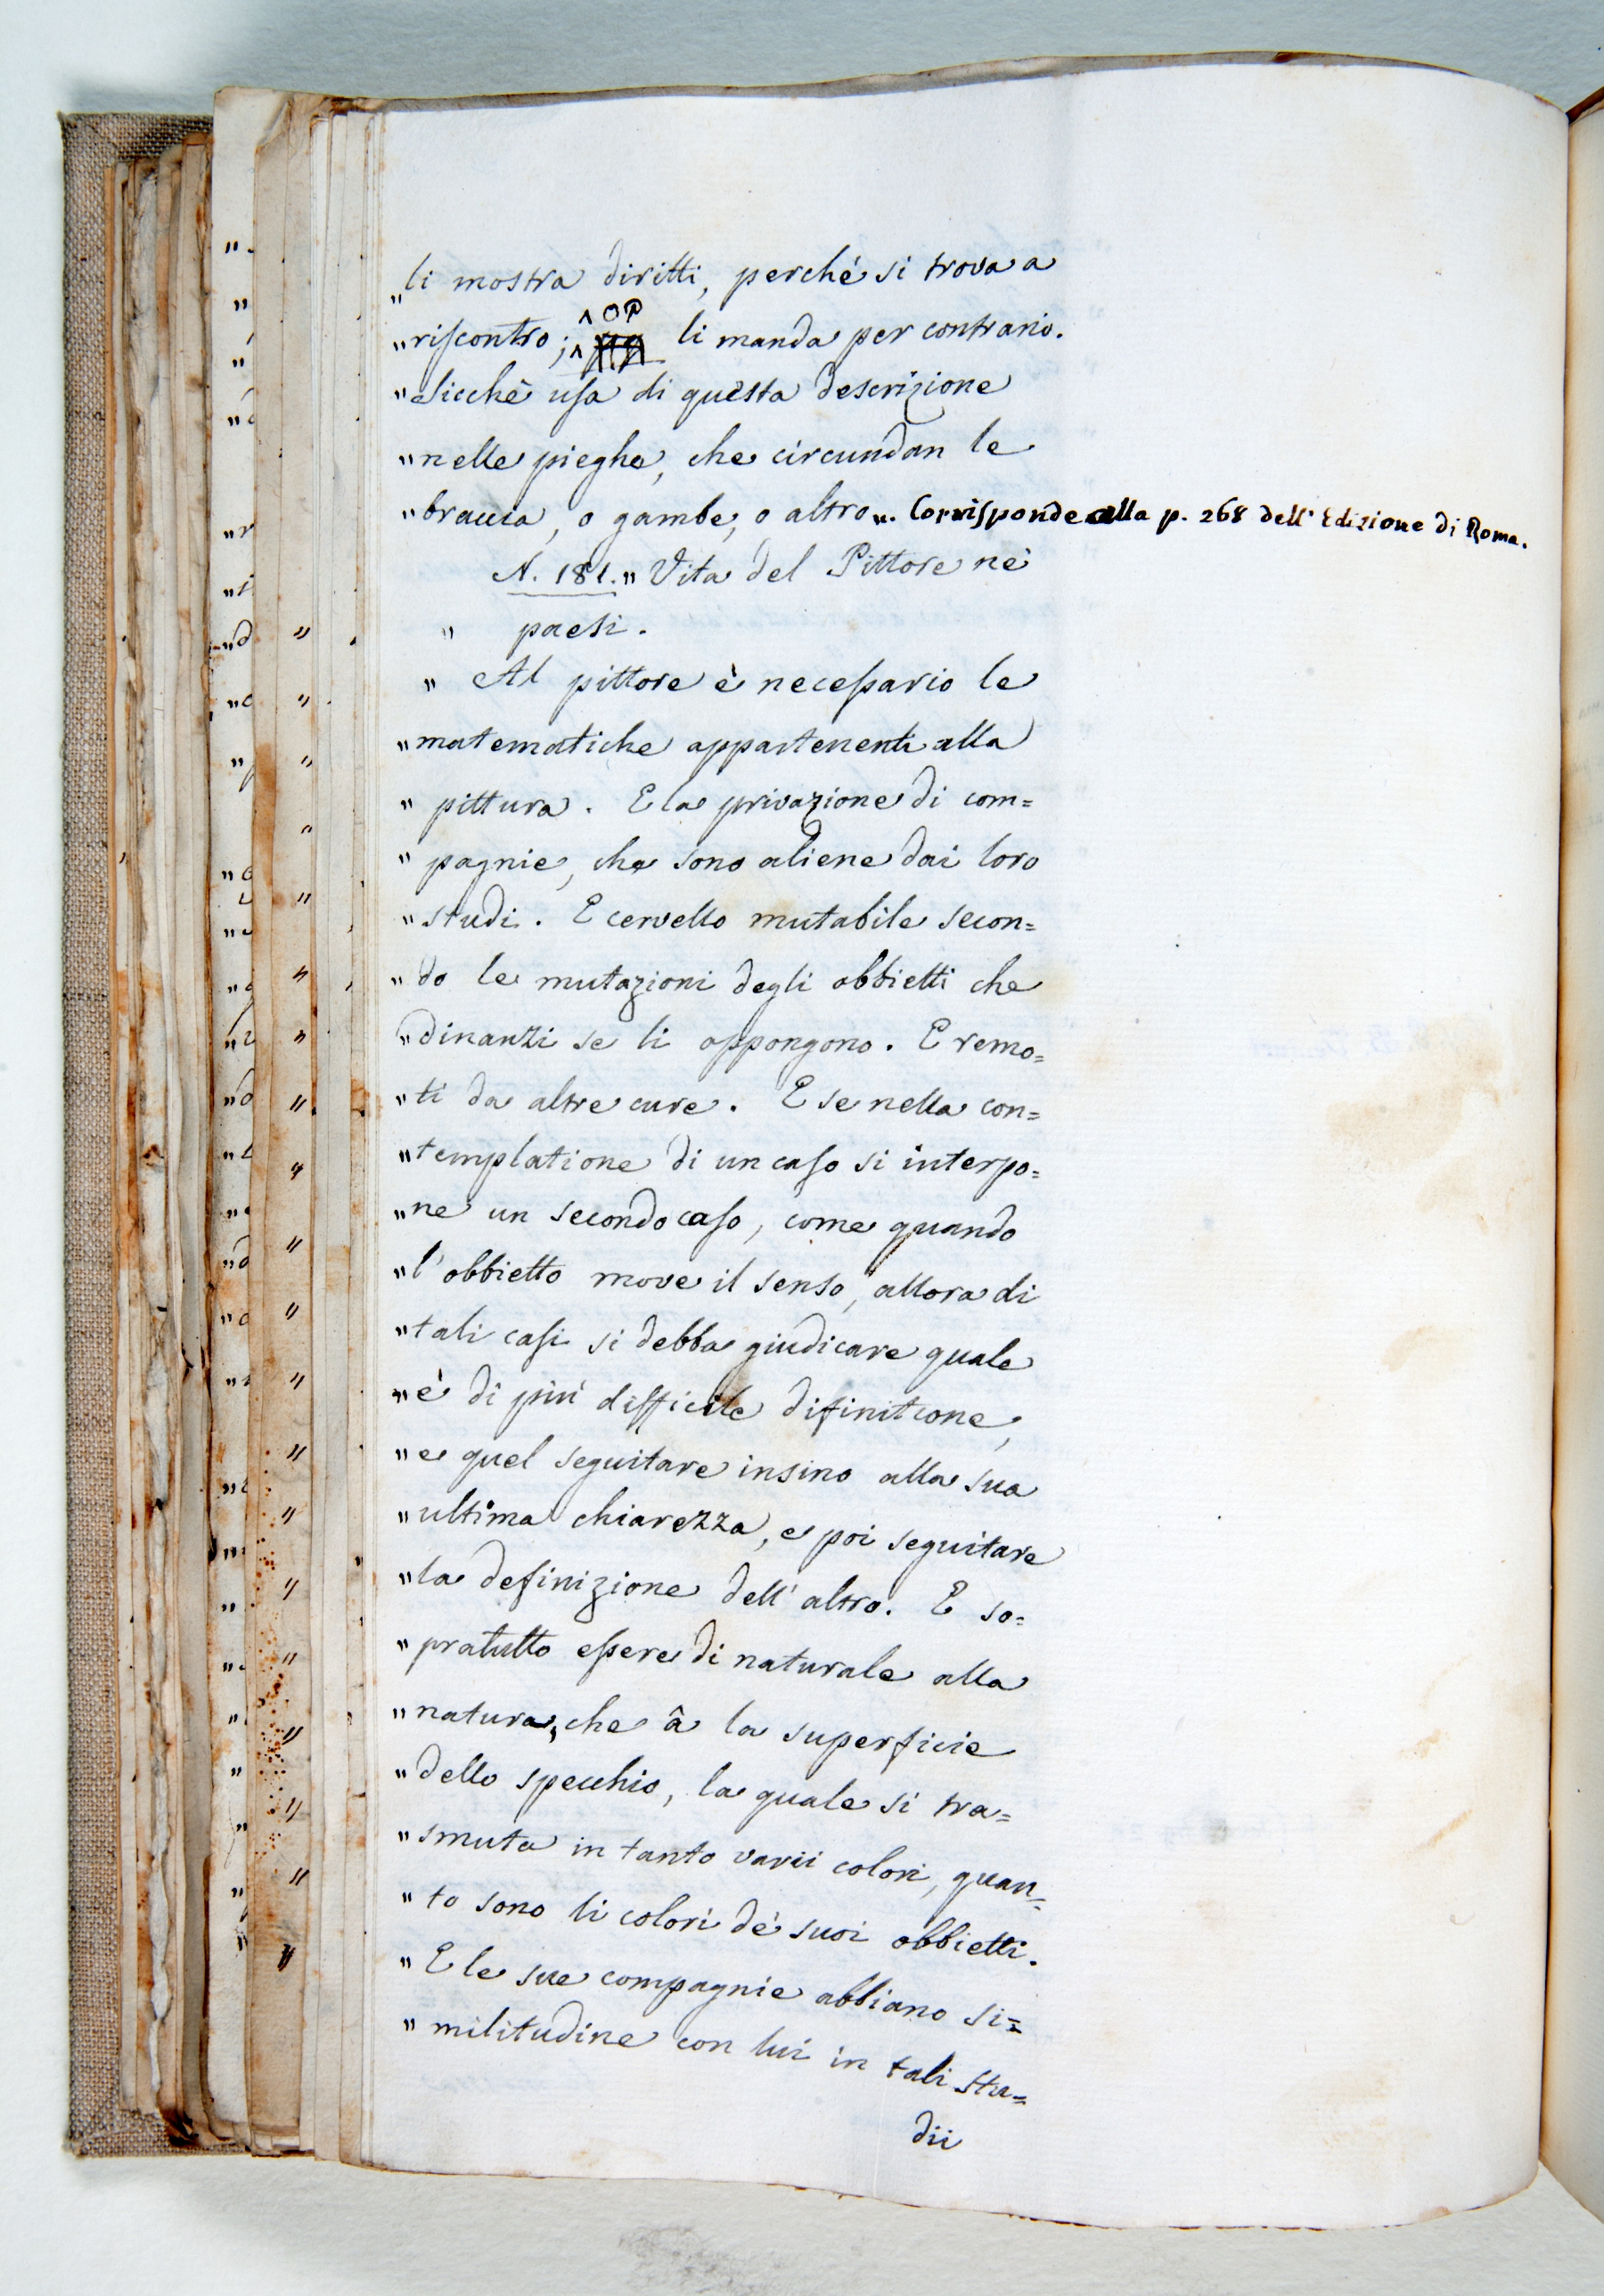 „li mostra diritti, perchè si trova a
„riscontro; ^ OP li manda per contrario.
„Sicchè usa di questa descrizione
„nelle pieghe, che circundan le
„braccia, o gambe, o altro„. Corrisponde alla p. 268 dell' Edizione di Roma.
N. 181. „Vita del Pittore ne'
„ paesi.
„ Al pittore è necessario le
„matematiche appartenenti alla
„pittura. E la privazione di com=
„pagnie, che sono aliene dai loro
„studi. E cervello mutabile secon=
„do le mutazioni degli obbietti che
„dinanzi se li oppongono. E remo=
„ti da altre cure. E se nella con=
„templatione di un caso si interpo=
„ne un secondo caso, come quando
„l'obbietto move il senso, allora di
„tali casi si debba giudicare quale
„è di più difficile difinitione,
„e quel seguitare insino alla sua
„ultima chiarezza, e poi seguitare
„la definizione dell'altro. E so=
„pratutto essere di naturale alla
„natura, che â la superficie
„dello specchio, la quale si tra=
„smuta in tanto varii colori, quan=
„to sono li colori de' suoi obbietti.
„E le sue compagnie abbiano si=
„militudine con lui in tali stu=
dii